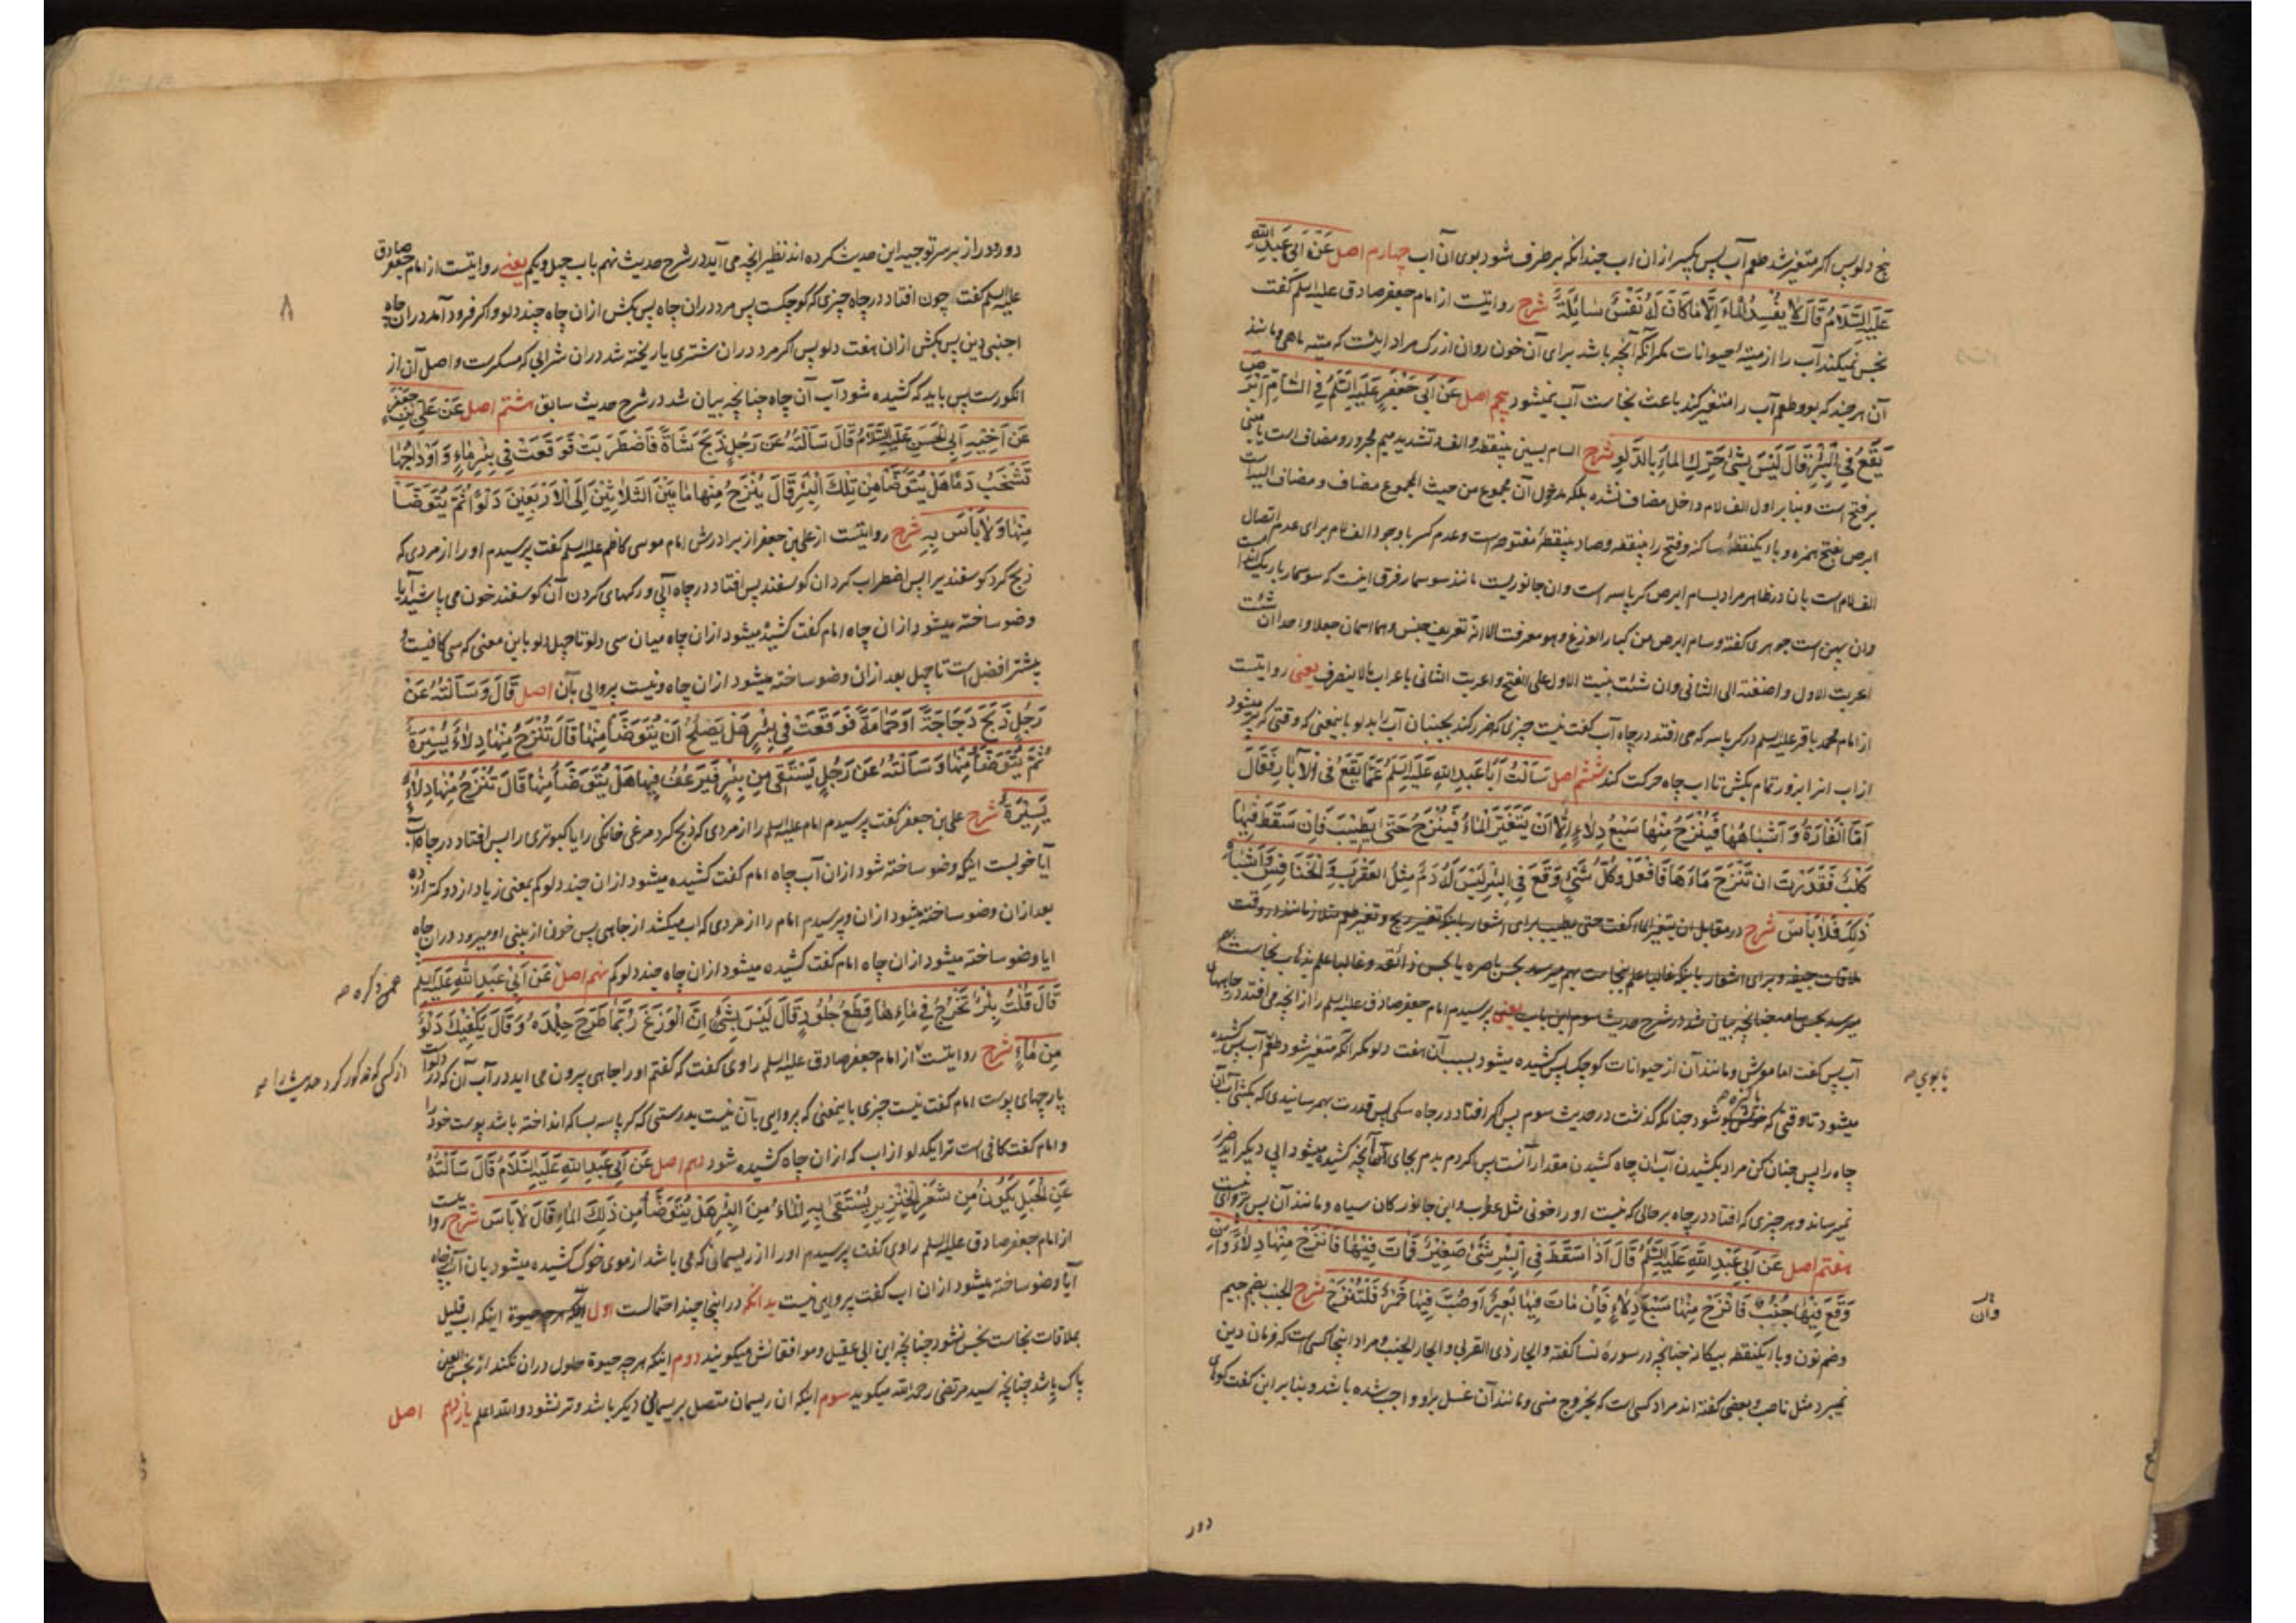 پنج دلو پس اکر متغیر شد طعم آب پس بکیر ازان اب چندانکه برطرف شود بوی آن آب چهارم اصل عَنْ اَبی عَبدِ اللّه
عَلَیهِ السَّلَامُ قَالَ لَا یُفْسِدُ الْمَاءَ اِلَّا مَا کَانَ لَهُ نَفْسٌ سَائِلَةٌ شرح روایتست از امام جعفر صادق علیه السلم گفت
نجس نمیکند آب را از میتۀ حیوانات مکر آنکه آنچه باشد برای آن خون روان از رک مراد اینست که میته ماهی و مانند
آن هر چند که بو و طعم آب را متغیر کند باعث نجاست آب نمیشود پنجم اصل عَنْ اَبی جَعْفَرٍ عَلَیهِ السَّلَمُ فِی السَّامِّ اَبْرَصَ
یَقَعُ فِی الْبِئْرِ قَالَ لَیْسَ بِشَیْءٍ حَرِّكِ الْمَاءَ بِالدَّلْوِ شرح السام بسین بینقطه و الف و تشدید میم مجرور و مضاف است یا مبنی
بر فتح است و بنا بر اول الف لام داخل مضاف نشده بلکه مدخول آن مجموع من حیث المجموع مضاف و مضاف الیه است
ابرص بفتح همزه و با ایکنقطۀ ساکنه و فتح را بینقطه و صاد بینقطۀ مفتوحه است و عدم کسر با وجود الف لام برای عدم اتصال
الف لام است بان و ظاهر مراد بسام ابرص کرباسه است و ان جانوریست مانند سوسمار فرق اینست که سوسمار باریکست
وان پهن است جوهری کفته و سام ابرص من کبار الوزغ و هو معرفة الا انه تعریف جنس و هما اسمان جعلا واحدا ان شئت
اعربت الاول و اضفته الی الثانی و ان شئت بنیت الاول علی الفتح و اعربت الثانی باعراب مالا ینصرف یعنی روایتست
از امام محمد باقر علیه السلم در کرباسه که می افتد در چاه آب گفت نیست چیزی که ضرر کند بجنبان آب را بدلو باینمعنی که وقتی که پر میشود
از اب انرا بزور تمام بکش تا اب چاه حرکت کند ششم اصل سَاَلْتُ اَبَا عَبدِ اللهِ عَلَیهِ السَّلَمُ عَمَّا یَقَعُ فِی الْآبَارِ فَقَالَ
اَمَّا الْفَارَةُ وَ اَشْبَاهُهَا فَیُنْزَحُ مِنْهَا سَبْعُ دِلَاءٍ اِلَّا اَنْ یَتَغَیَّرَ الْمَاءُ فَیُنْزَحُ حَتّٰی یَطِیْبَ فَاِنْ سَقَطَ فِیْهَا
کَلْبٌ فَقَدَرْتَ ان تَنْزَحَ مَاءَهَا فَافْعَلْ وَکُلُّ شَیْءٍ وَقَعَ فِی الْبِئْرِ لَیْسَ لَهُ دَمٌ مِثْلُ الْعَقْرَبِ وَ الْخَنَافِسِ وَ اَشْبَاهِ
ذٰلِكَ فَلَا بَأْسَ شرح در مقابل ان یتغیر الماء گفت حتی یطیب برای اشعار باینکه تغیر ریح و تغیر طعم متلازمانند در وقت
ملاقات جیفه و برای اشعار باینکه غالبا علم بنجاست بهم میرسد بحس باصره یا بحس ذائقه و غالبا علم بذهاب نجاست بهم
میرسد بحس شامه چنانچه بیان شد در شرح حدیث سوم این باب یعنی پرسیدم امام جعفر صادق علیه السلم را از انچه می افتد در چاههای
آب پس گفت اما موش و مانند آن از حیوانات کوچک پس کشیده میشود بسبب آن هفت دلو مکر آنکه متغیر شود طعم آب پس کشیده
یا بوی صح
میشود تا وقتی که خوش بو شود چنانکه گذشت در حدیث سوم پس اکر افتاد در چاه سکی پس قدرت بهمرسانیدی که بکشی آب آن
چاه را پس چنان کن مراد بکشیدن آب ان چاه کشیدن مقدار آنست پس کردم بدم بجای آنچه کشیده میشود ابی دیکر اید ضرر
نمیرساند و هر چیزی که افتاد در چاه بر حالی که نیست او را خونی مثل عقرب و این جانورکان سیاه و مانند آن پس نیست پروایی
هفتم اصل عَنْ اَبِی عَبْدِ اللهِ عَلَیهِ السَّلَمُ قَالَ اِذَا سَقَطَ فِی الْبِئْرِ شَیْءٌ صَغِیْرٌ فَمَاتَ فِیْهَا فَانْزَحْ مِنْهَا دِلَاءً وَاِنْ
وَقَعَ فِیْهَا جُنُبٌ فَانْزَحْ مِنْهَا سَبْعَ دِلَاءٍ فَاِنْ مَاتَ فِیْهَا بَعِیْرٌ اَوْ صُبَّ فِیْهَا خَمْرٌ فَلْتُنْزَحْ شرح الجنب بضم جیم
وان
و ضم نون و با ایکنقطه بیکانه چنانچه در سورۀ نسا کفته و الجار ذی القربی و الجار الجنب و مراد اینجا کسی است که فرمان دین
نمیبرد مثل ناصب و بعضی کفته اند مراد کسی است که بخروج منی و مانند آن غسل بر او واجب شده باشد و بنا بر این کفت کوی
دور
دور و دراز بر سر توجیه این حدیث کرده اند نظیر انچه می آید در شرح حدیث نهم باب چهل و یکم یعنی روایتست از امام جعفر صادق
علیه السلم گفت چون افتاد در چاه چیزی که کوچکست پس مرد دران چاه پس بکش ازان چاه چند دلو و اکر فرود آمد دران چاه
۸
اجنبی دین پس بکش ازان هفت دلو پس اکر مرد دران شتری یا ریخته شد دران شرابی که مسکرست و اصل آن از
انکورست پس باید که کشیده شود آب آن چاه چنانچه بیان شد در شرح حدیث سابق هشتم اصل عَنْ عَلِیِّ بْنِ جَعْفَرٍ
عَنْ اَخِیْهِ اَبِی الْحَسَنِ عَلَیهِ السَّلَامُ قَالَ سَاَلْتُهُ عَنْ رَجُلٍ ذَبَحَ شَاةً فَاضْطَرَبَتْ فَوَقَعَتْ فِی بِئْرِ مَاءٍ وَ اَوْدَاجُهَا
تَشْخَبُ دَمًا هَلْ یُتَوَضَّأُ مِنْ تِلْكَ الْبِئْرِ قَالَ یُنْزَحُ مِنْهَا مَا بَیْنَ الثَّلَاثِیْنَ اِلَی الْاَرْبَعِیْنَ دَلْوًا ثُمَّ یُتَوَضَّأُ
مِنْهَا وَلَا بَأْسَ بِهِ شرح روایتست از علی بن جعفر از برادرش امام موسی کاظم علیه السلم گفت پرسیدم او را از مردی که
ذبح کرد کوسفندی را پس اضطراب کرد ان کوسفند پس افتاد در چاه آبی و رکهای کردن آن کوسفند خون می پاشید آیا
وضو ساخته میشود ازان چاه امام گفت کشیده میشود ازان چاه میان سی دلو تا چهل دلو باین معنی که سی کافیست و
بیشتر افضل است تا چهل بعد ازان وضو ساخته میشود ازان چاه و نیست پروایی بآن اصل قَالَ وَ سَاَلْتُهُ عَنْ
رَجُلٍ ذَبَحَ دَجَاجَةً اَوْ حَمَامَةً فَوَقَعَتْ فِی بِئْرٍ هَلْ یَصْلُحُ اَنْ یُتَوَضَّأَ مِنْهَا قَالَ تُنْزَحُ مِنْهَا دِلَاءٌ یَسِیْرَةٌ
ثُمَّ یُتَوَضَّأُ مِنْهَا وَ سَاَلْتُهُ عَنْ رَجُلٍ یَسْتَقِی مِنْ بِئْرٍ فَیَرْعَفُ فِیْهَا هَلْ یُتَوَضَّأُ مِنْهَا قَالَ تُنْزَحُ مِنْهَا دِلَاءٌ
یَسِیْرَةٌ شرح علی بن جعفر گفت پرسیدم امام علیه السلم را از مردی که ذبح کرد مرغی خانکی را یا کبوتری را پس افتاد در چاه آب
آیا خوبست اینکه وضو ساخته شود ازان آب چاه امام گفت کشیده میشود ازان چند دلو کم بمعنی زیاد از دو کمتر از ده
بعد ازان وضو ساخته میشود ازان و پرسیدم امام را از مردی که اب میکشد از چاهی پس خون از بینی او میرود دران چاه
ایا وضو ساخته میشود ازان چاه امام گفت کشیده میشود ازان چاه چند دلو کم نهم اصل عَنْ اَبِیْ عَبدِ اللهِ عَلَیهِ السلم
عمن ذکره صح
قَالَ قُلْتُ بِئْرٌ تَخْرُجُ فِی مَاءِهَا قِطَعُ جُلُودٍ قَالَ لَیْسَ بِشَیْءٍ اِنَّ الْوَزَغَ رُبَّمَا طَرَحَ جِلْدَهُ وَ قَالَ یَکْفِیْكَ دَلْوٌ
مِنْ مَاءٍ شرح روایتست از امام جعفر صادق علیه السلم راوی گفت که گفتم او را چاهی بیرون می اید در آب آن
از کسی که مذکور کرد حدیث را صح
پارچهای پوست امام گفت نیست چیزی باینمعنی که پروایی بآن نیست بدرستی که کرباسه بسا که انداخته باشد پوست خود را
و امام گفت کافی است ترا یکدلو از اب که ازان چاه کشیده شود دهم اصل عَنْ اَبِی عَبدِ اللهِ عَلَیهِ السَّلَامُ قَالَ سَاَلْتُهُ
عَنِ الْحَبْلِ یَکُوْنُ مِنْ شَعْرِ الْخِنْزِیرِ یُسْتَقٰی بِهِ الْمَاءُ مِنَ الْبِئْرِ هَلْ یُتَوَضَّأُ مِن ذٰلِكَ الْمَاءِ قَالَ لَا بَأسَ شرح روایتست
از امام جعفر صادق علیه السلم راوی گفت پرسیدم او را از ریسمانی که می باشد از موی خوک کشیده میشود بان آب چاه
آیا وضو ساخته میشود ازان اب گفت پروایی نیست بدانکه در اینجا چند احتمالست اول اینکه اب قلیل
بملاقات نجاست نجس نشود چنانچه ابن ابی عقیل و موافقانش میکویند دوم اینکه هر چه حیوة حلول دران نکند از نجس العین
پاک باشد چنانچه سید مرتضی رحمه الله میکوید سوم اینکه ان ریسمان متصل بریسمانی دیکر باشد و تر نشود و الله اعلم یازدهم اصل